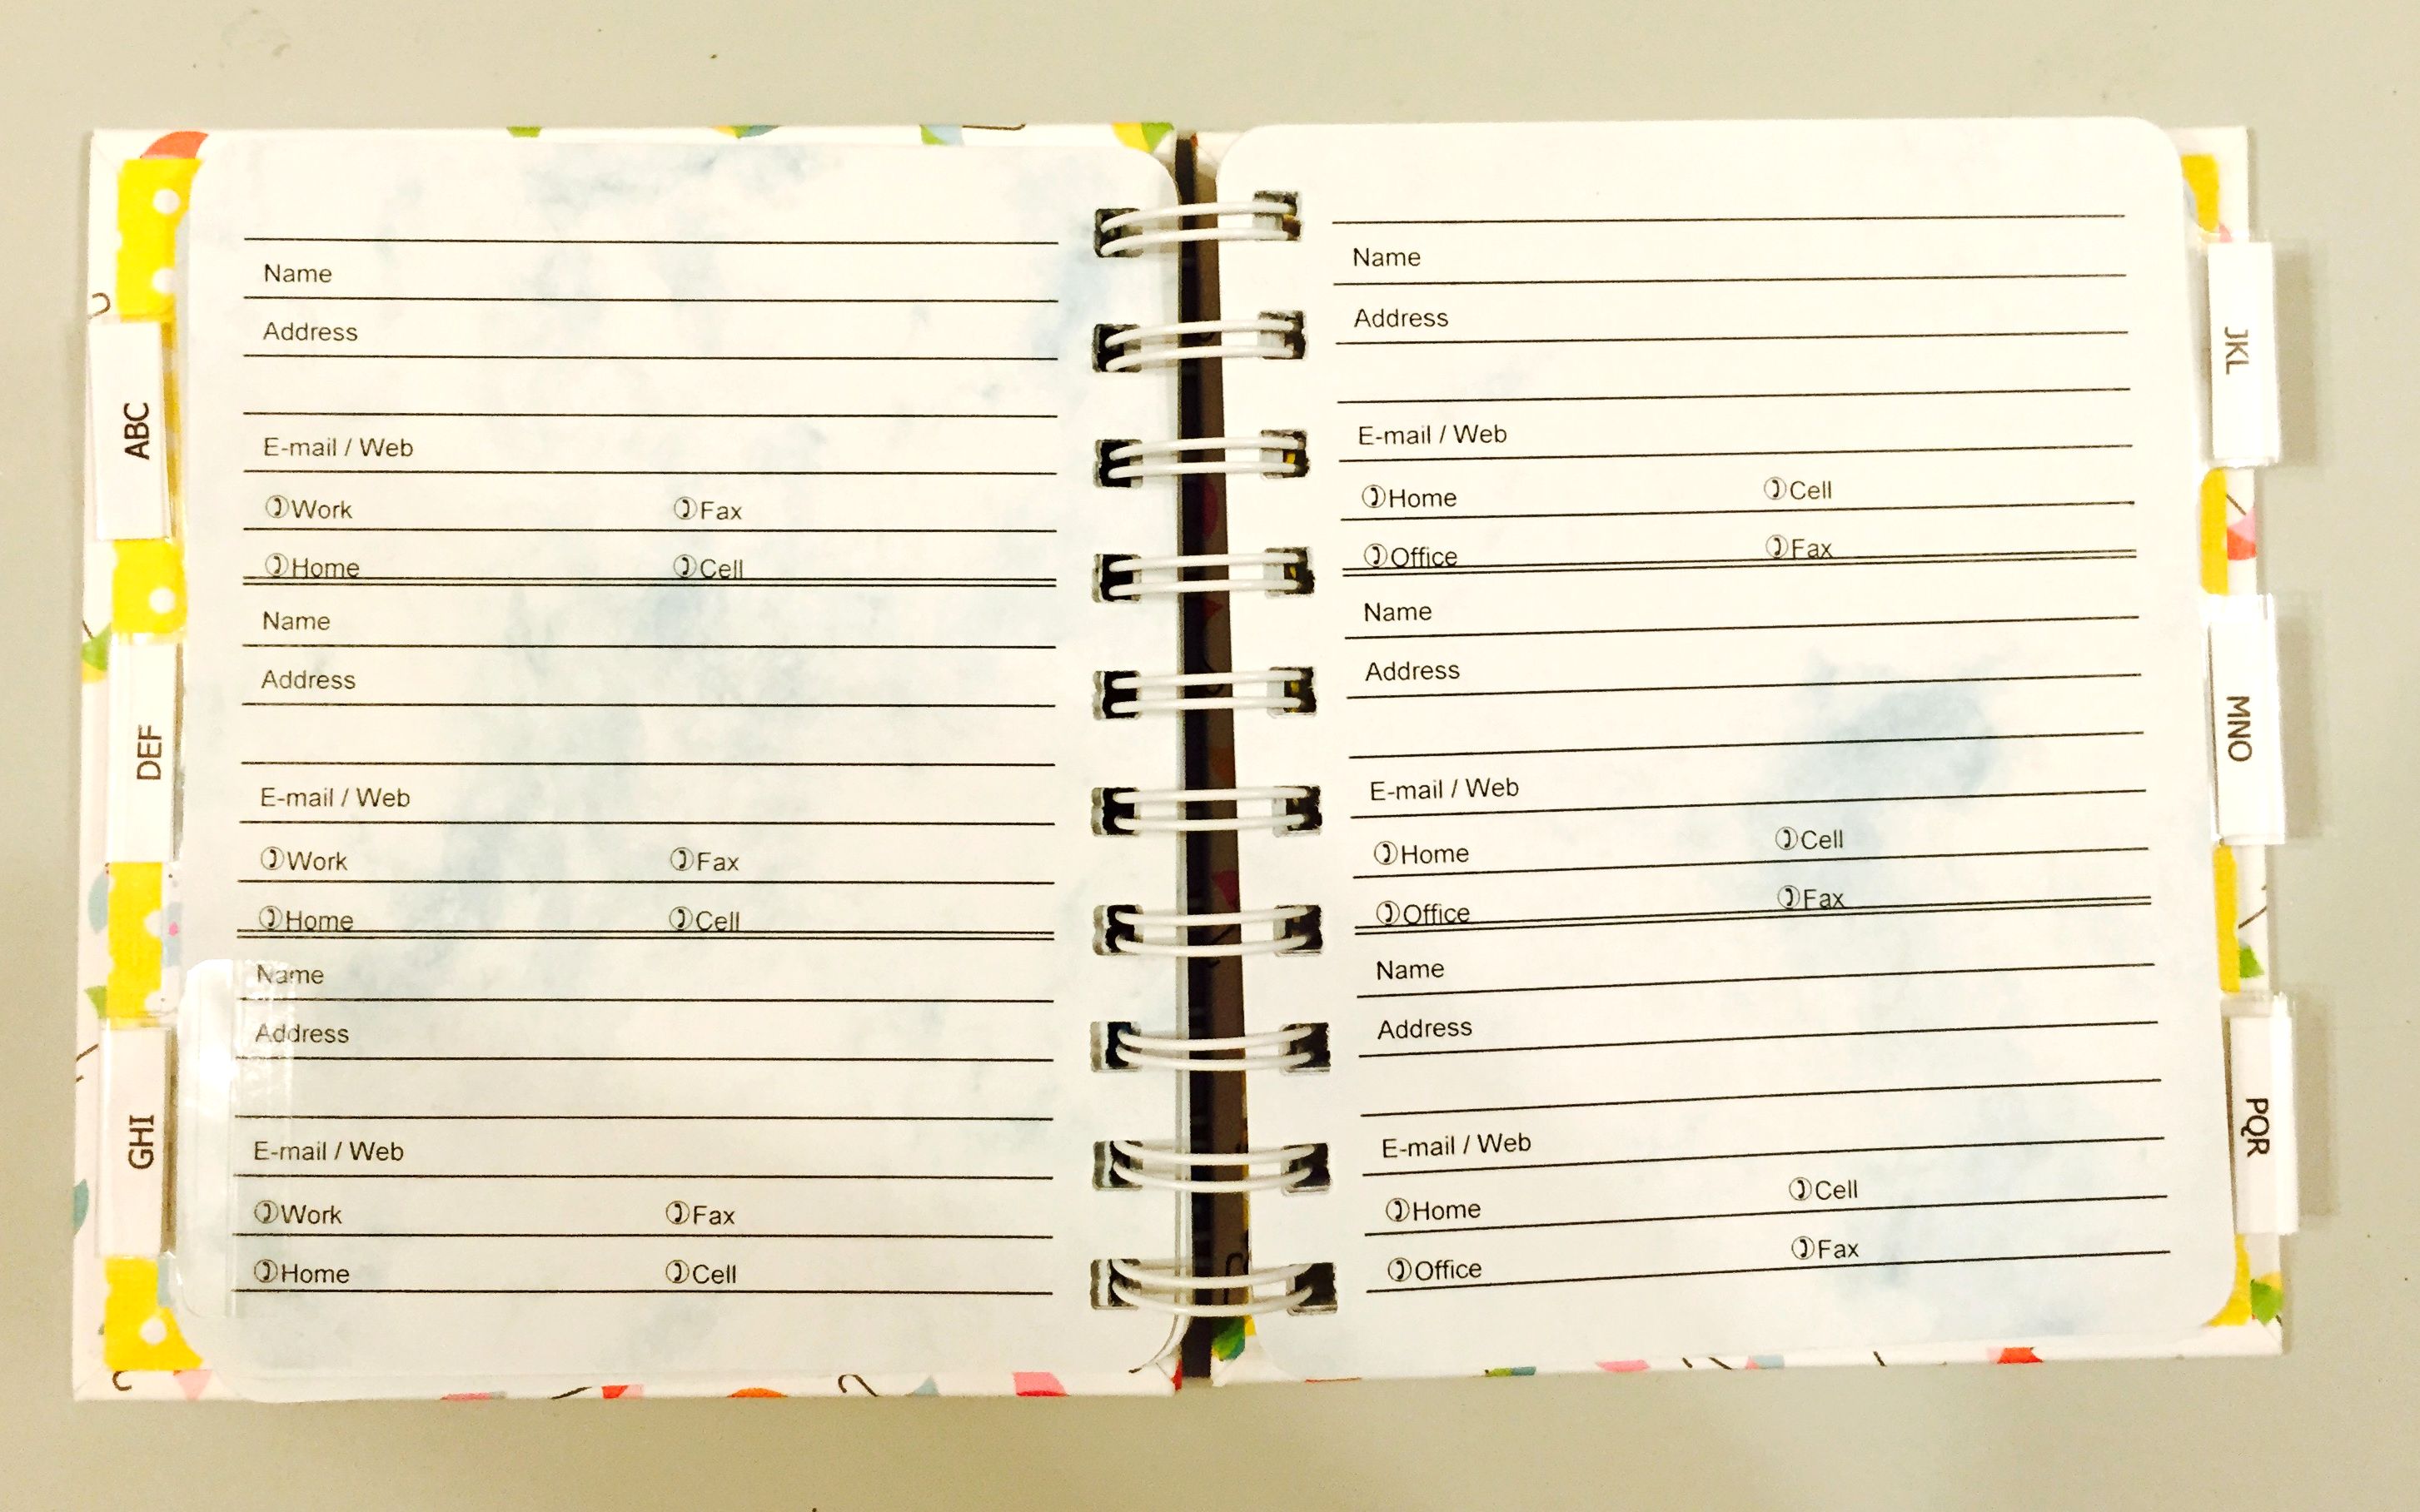 ABC
DEF
GHI
Name
Address
E-mail / Web
Work Fax
Home Cell
Name
Address
E-mail / Web
Work Fax
Home Cell
Name
Address
E-mail / Web
Work Fax
Home Cell
Name
Address
E-mail / Web
Home Cell
Office Fax
Name
Address
E-mail / Web
Home Cell
Office Fax
Name
Address
E-mail / Web
Home Cell
Office Fax
JKL
MNO
PQR